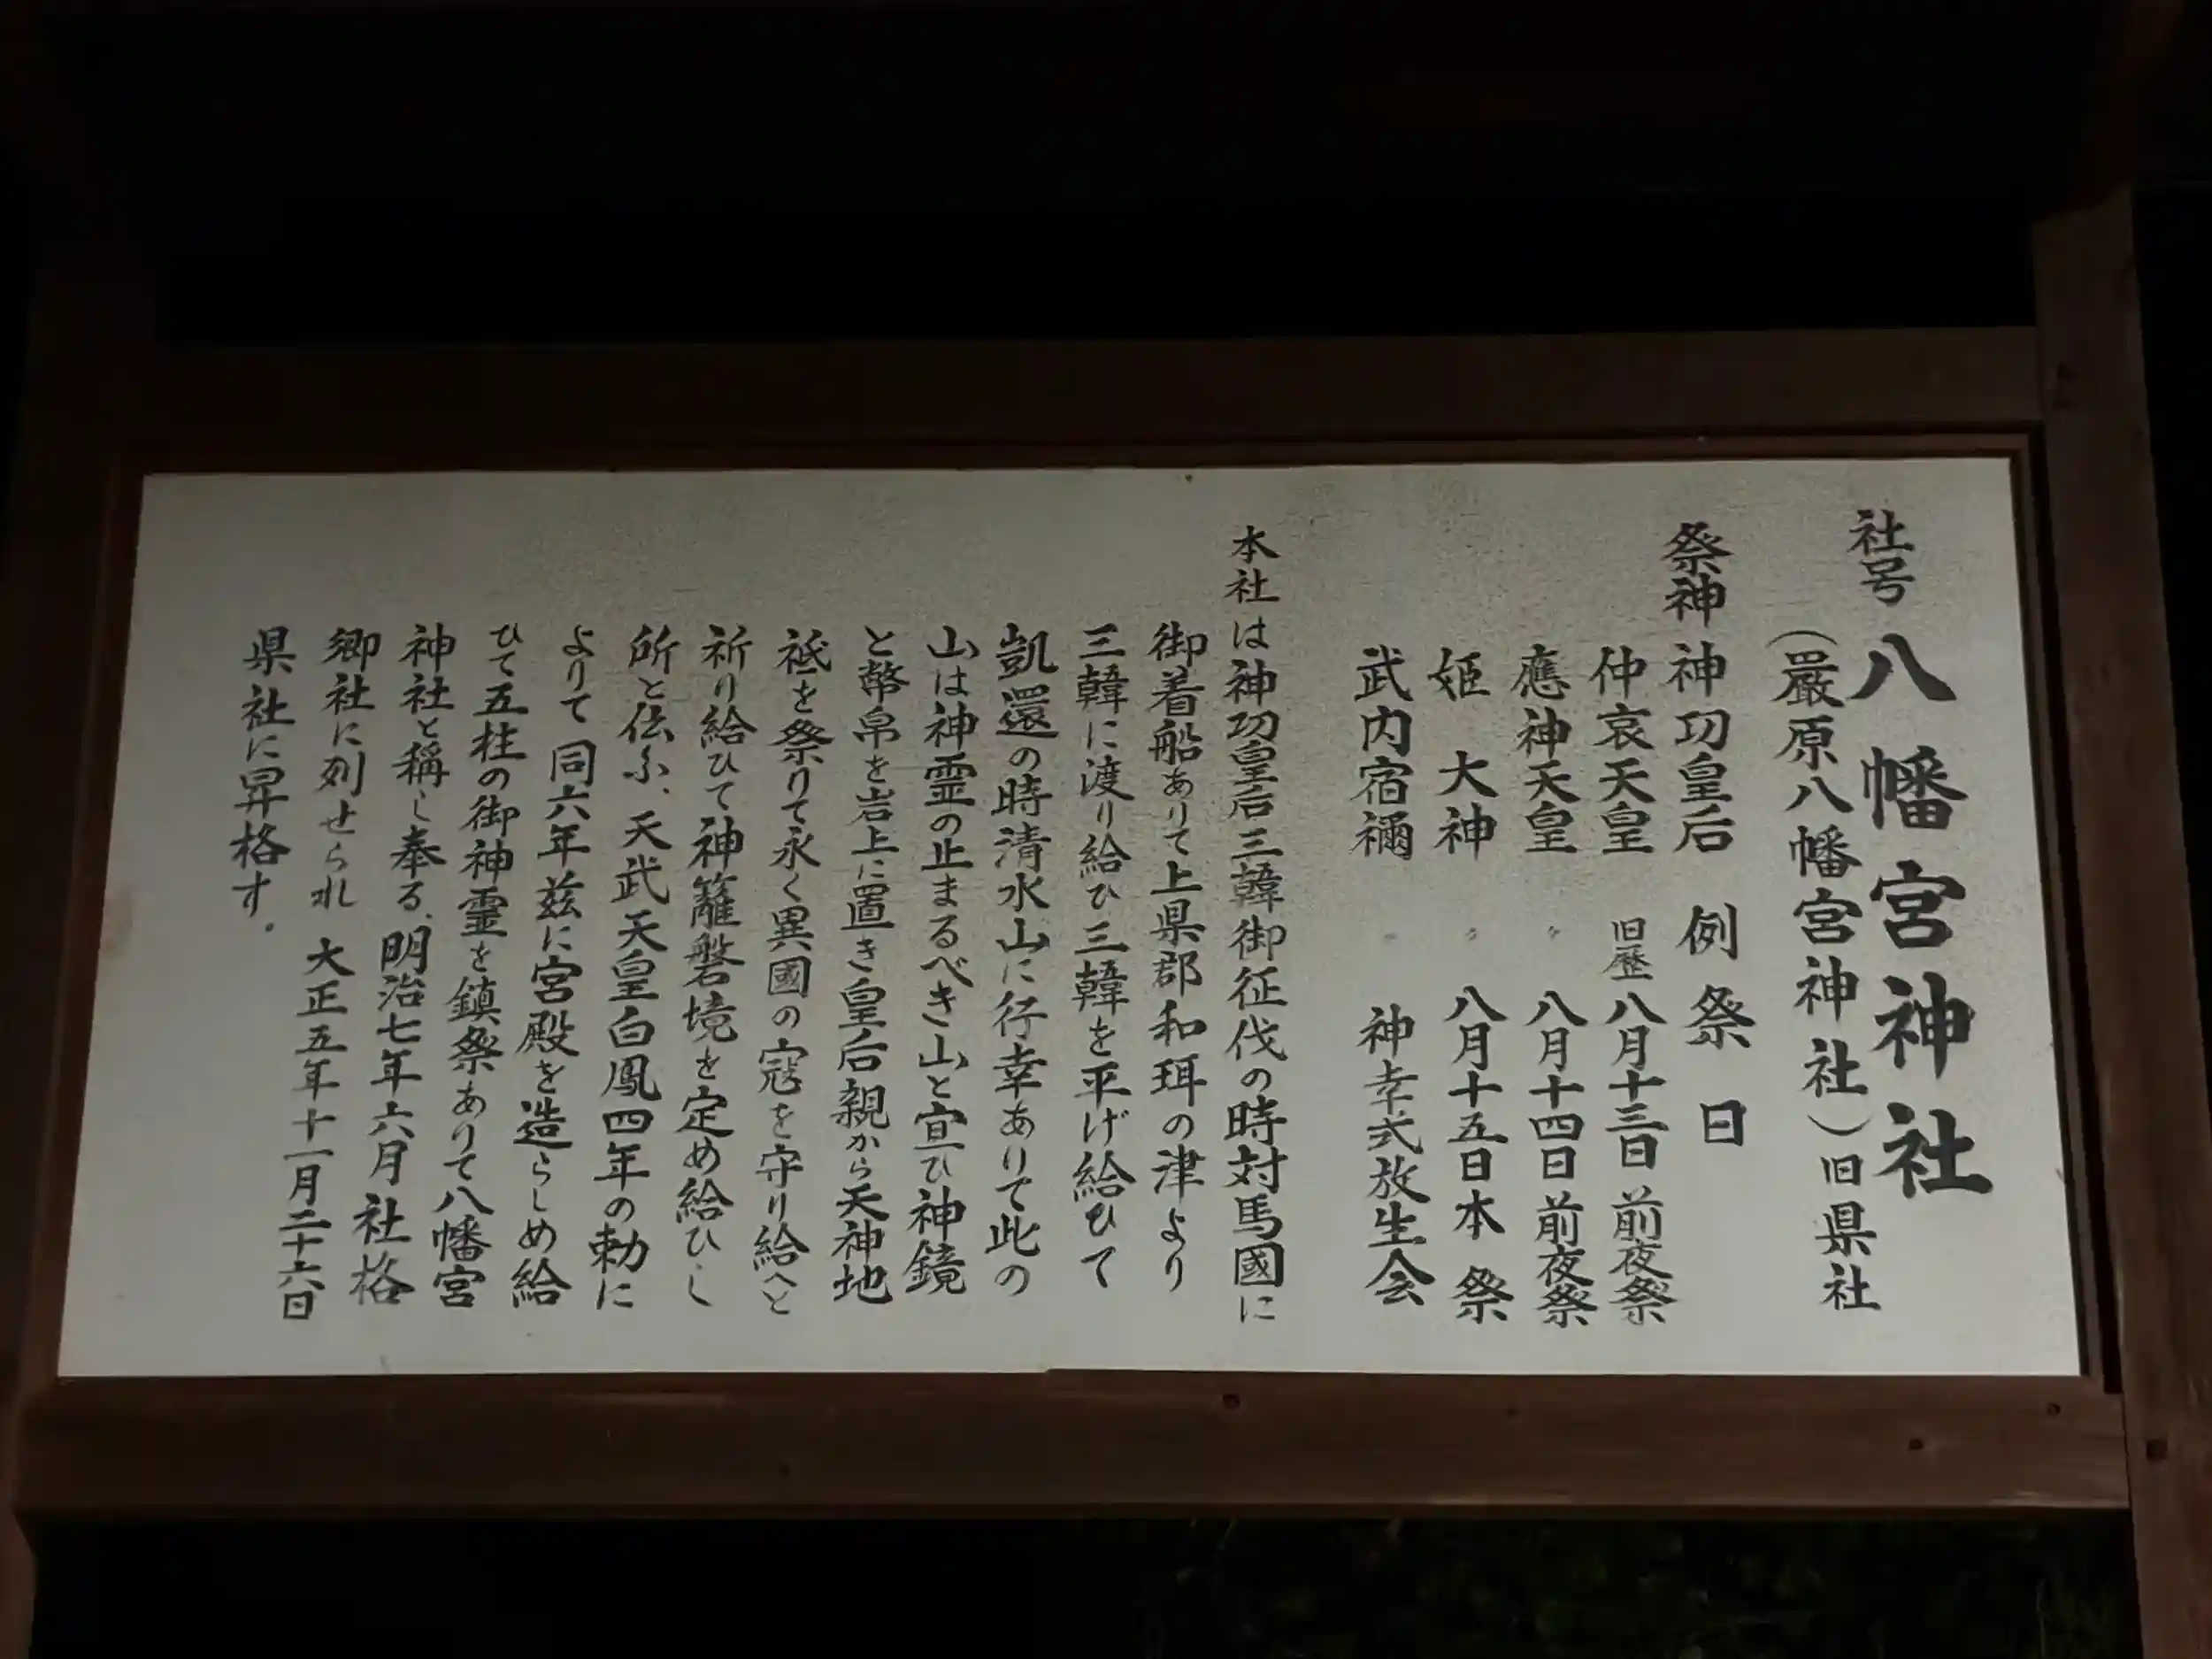 社号 八幡宮神社
(厳原八幡宮神社)旧県社
祭神 神功皇后 例祭日
仲哀天皇 旧歴八月十三日 前夜祭
應神天皇 〃 八月十四日 前夜祭
姫大神 〃 八月十五日 本祭
武内宿禰 〃 神幸式放生会
本社は神功皇后三韓御征伐の時対馬國に
御着船ありて上県郡和珥の津より
三韓に渡り給ひ三韓を平げ給ひて
凱還の時清水山に行幸ありて此の
山は神霊の止まるべき山と宣ひ神鏡
と幣帛を岩上に置き皇后親から天神地
祗を祭りて永く異國の寇を守り給へと
祈り給ひて神籬磐境を定め給ひし
所と伝ふ、天武天皇白鳳四年の勅に
よりて同六年茲に宮殿を造らしめ給
ひて五柱の御神霊を鎮祭ありて八幡宮
神社と稱し奉る、明治七年六月社格
郷社に列せられ 大正五年十一月二十六日
県社に昇格す。